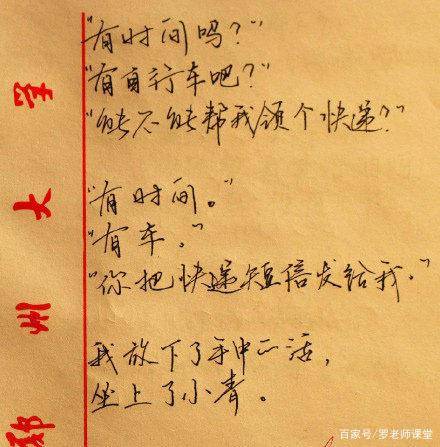 "有时间吗?"
"有自行车吧?"
"能不能帮我领个快递?"
"有时间。"
"有车。"
"你把快递短信发给我。"
我放下了手中的活,
坐上了小青。
鄢州大
百家号/罗老师课堂